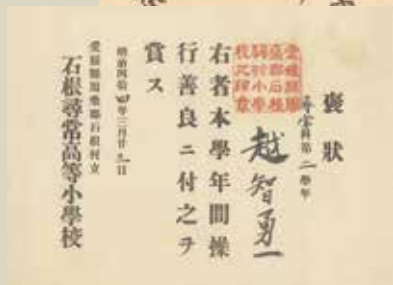 褒狀
尋常科第二學年
越智勇一
右者本學年間操
行善良ニ付之ヲ
賞ス
明治四拾四年三月廿五日
愛媛縣周桑郡石根村立
石根尋常高等小學校